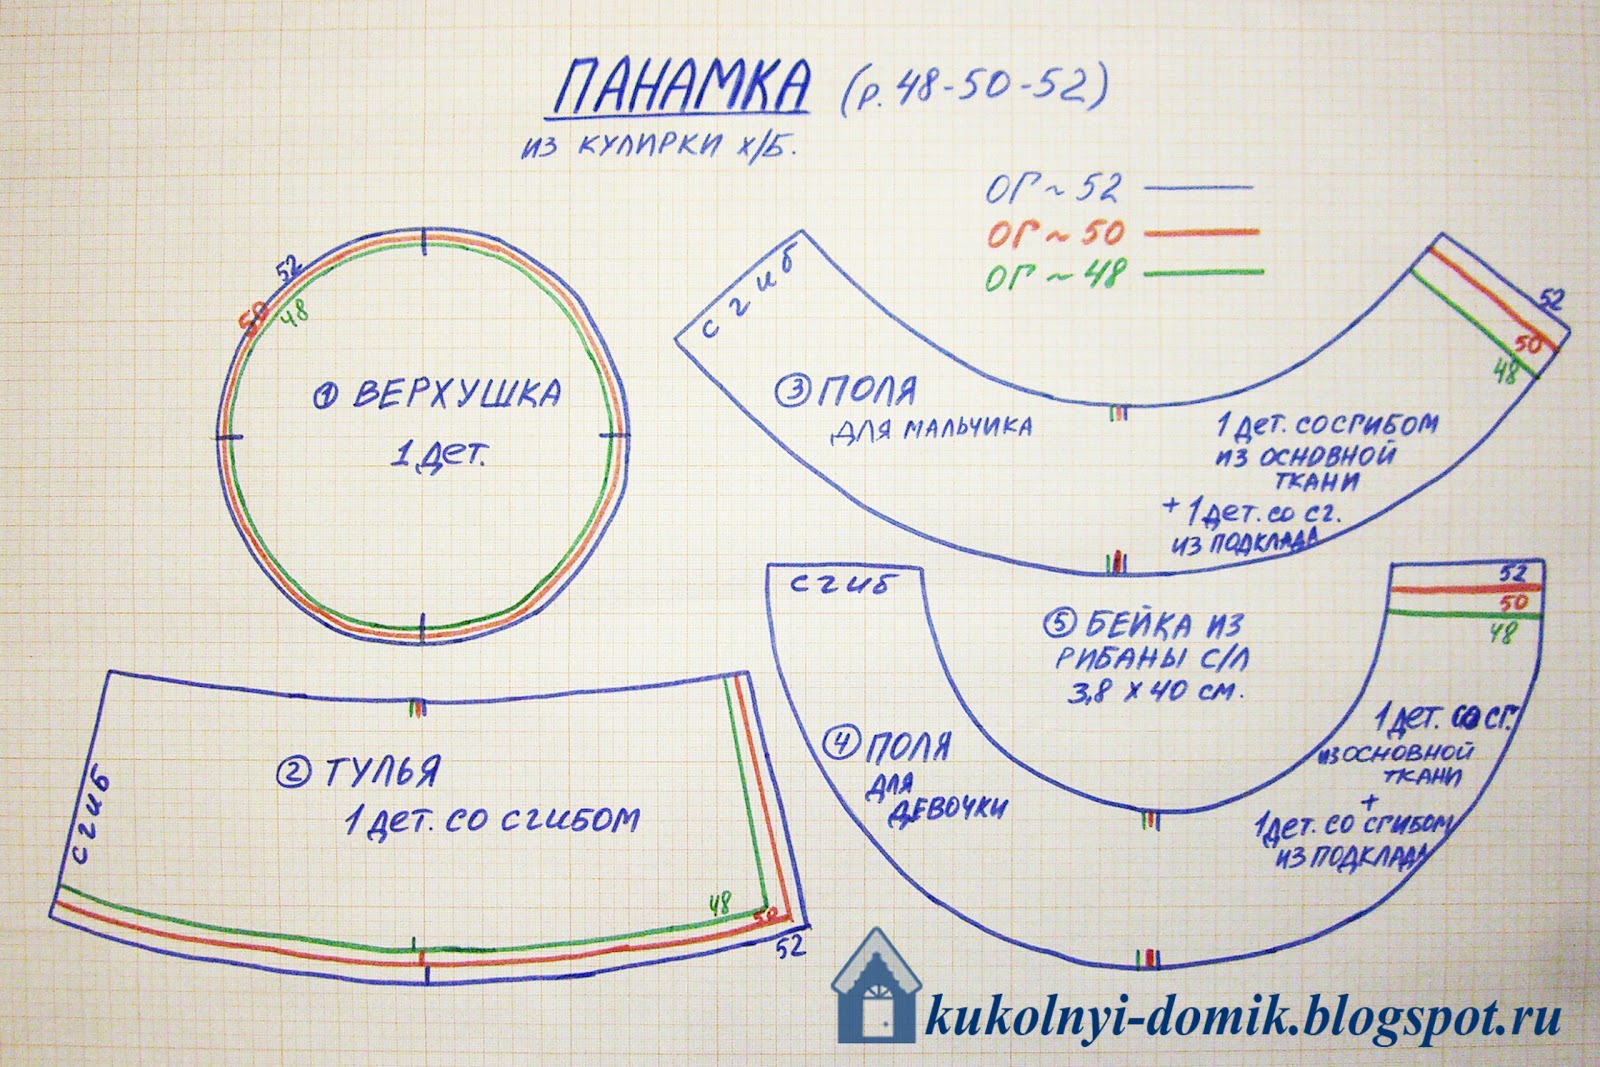 ПАНАМКА (р. 48-50-52)
ИЗ КУЛИРКИ Х/Б.
ОГ ~ 52
ОГ ~ 50
ОГ ~ 48
52
50
48
① ВЕРХУШКА
1 дет.
сгиб
② ТУЛЬЯ
1 дет. со сгибом
48
50
52
сгиб
③ ПОЛЯ
ДЛЯ МАЛЬЧИКА
1 дет. со сгибом
из основной
ткани
+ 1 дет. со сг.
из подклада
52
50
48
сгиб
④ ПОЛЯ
для
девочки
1 дет. со сг.
из основной
ткани
+
1 дет. со сгибом
из подклада
52
50
48
⑤ БЕЙКА ИЗ
РИБАНЫ С/Л
3,8 х 40 см.
kukolnyi-domik.blogspot.ru